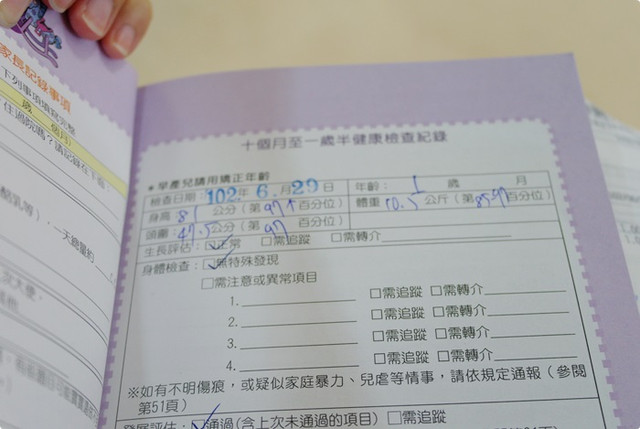 家長記錄事項
下列事項填寫完整
歲 個月)
住過院嗎?請記錄在下面:
酪乳等),一天總量約
十個月至一歲半健康檢查紀錄
*早產兒請用矯正年齡
檢查日期:102年 6 月 29 日 年齡: 1 歲 月
身高 81 公分(第 97↑ 百分位) 體重 10.5 公斤(第 85-97 百分位)
頭圍 47.5 公分(第 97 百分位)
生長評估:☑正常 □需追蹤 □需轉介
身體檢查:☑無特殊發現
□需注意或異常項目
1. □需追蹤 □需轉介
2. □需追蹤 □需轉介
3. □需追蹤 □需轉介
4. □需追蹤 □需轉介
※如有不明傷痕,或疑似家庭暴力、兒虐等情事,請依規定通報(參閱
第51頁)
發展評估:☑通過(含上次未通過的項目) □需追蹤